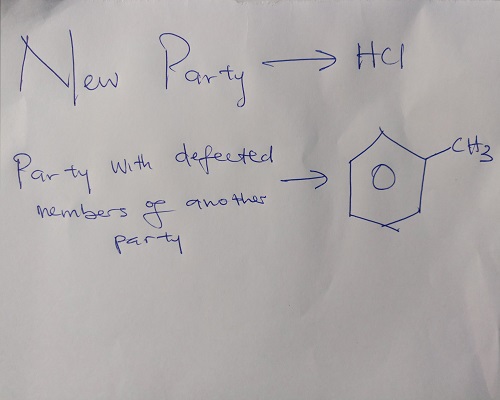 New Party → HCl
Party with defected → CH3
members of another
party